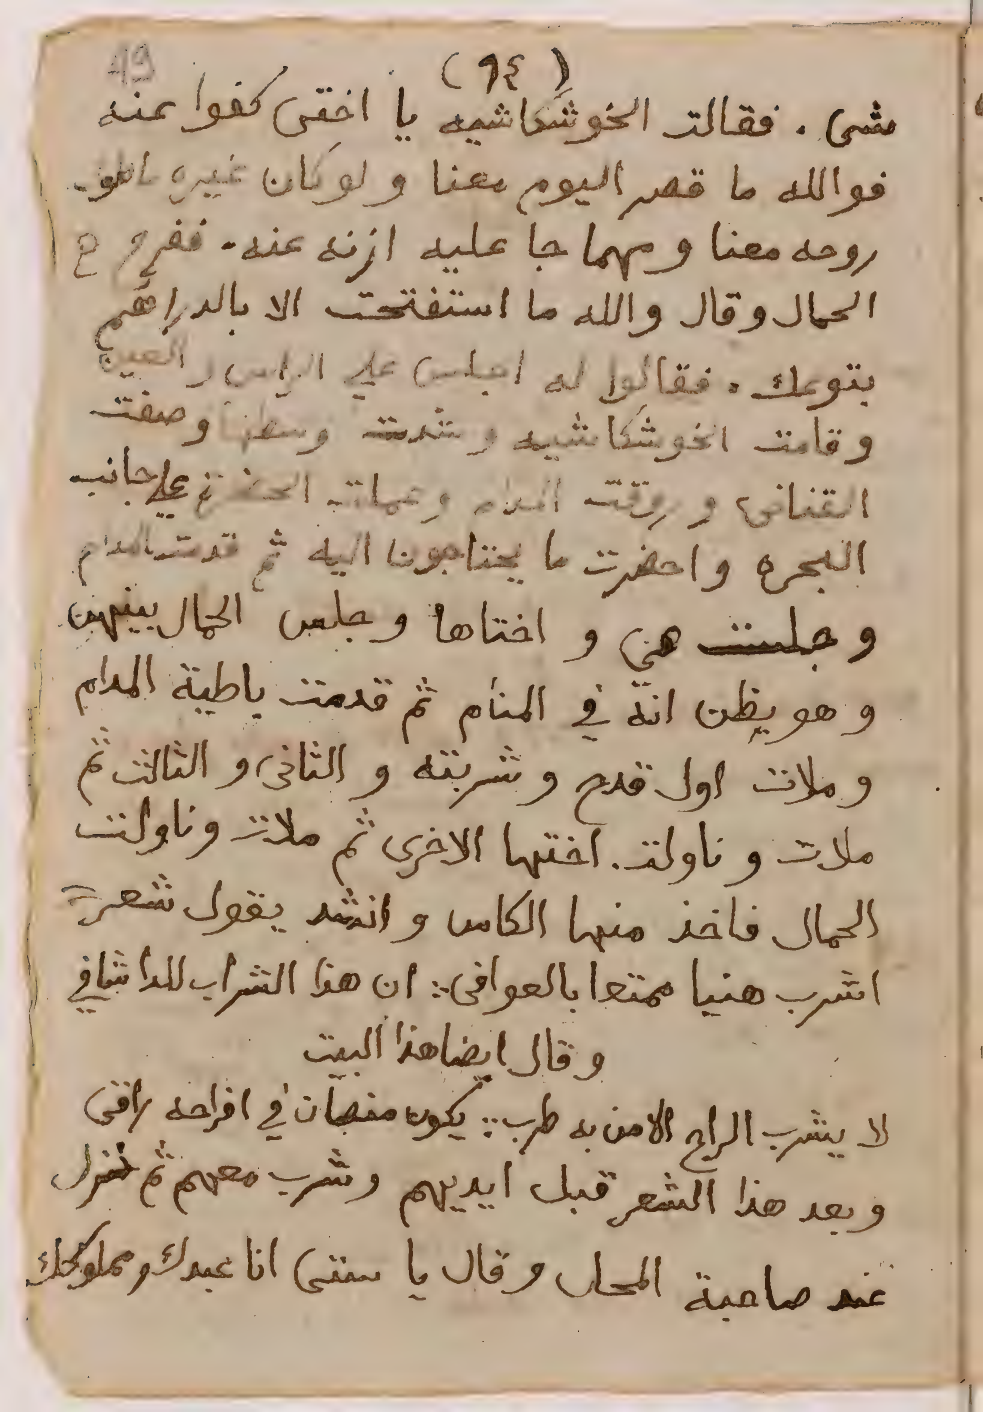 49
(٩٤)
شى . فقالت الخوشكاشيه يا اختى كفوا عنه
فوالله ما قصر اليوم معنا و لو كان غيره ما طول
روحه معنا و مهما جا عليه ازنه عنه . ففرح
الحمال وقال والله ما استفتحت الا بالدراهم
بتوعك . فقالوا له اجلس علي الراس و العين
و قامت الخوشكاشيه و شدت وسطها و صفت
القنانى و روقت المدام و عملت الحضرة علي جانب
البحره و احضرت ما يحتاجون اليه ثم قدمت المدام
و جلست هي و اختاها و جلس الحمال بينهن
و هو يظن انه في المنام ثم قدمت باطية المدام
و ملات اول قدح و شربته و الثانى و الثالث ثم
ملات و ناولت . اختها الاخرى ثم ملات و ناولت
الحمال فاخذ منها الكاس و انشد يقول شعر
اشرب هنيا ممتعا بالعوافى :: ان هذا الشراب للدا شافي
و قال ايضا هذا البيت
لا يشرب الراح الا من به طرب :: يكون في افراحه
و بعد هذا الشعر قبل ايديهم و شرب معهم ثم نزل
عند صاحبة المحل و قال يا ستى انا عبدك و مملوكك